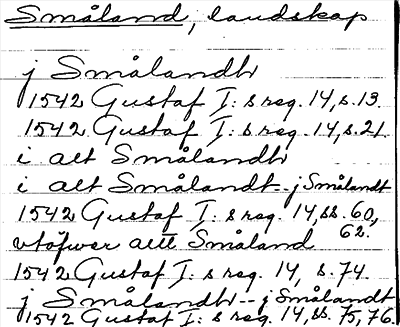 Småland, landskap
j Smålandh
1542 Gustaf I:s reg. 14, s. 13.
1542 Gustaf I:s reg. 14, s. 21.
i alt Smålandh
i alt Smålandt -- j Smålandt
1542 Gustaf I:s reg. 14, ss. 60, 62.
vtöfwer altt Småland
1542 Gustaf I:s reg. 14, s. 74.
j Smålandh -- j Smålandt
1542 Gustaf I:s reg. 14, ss. 75, 76.